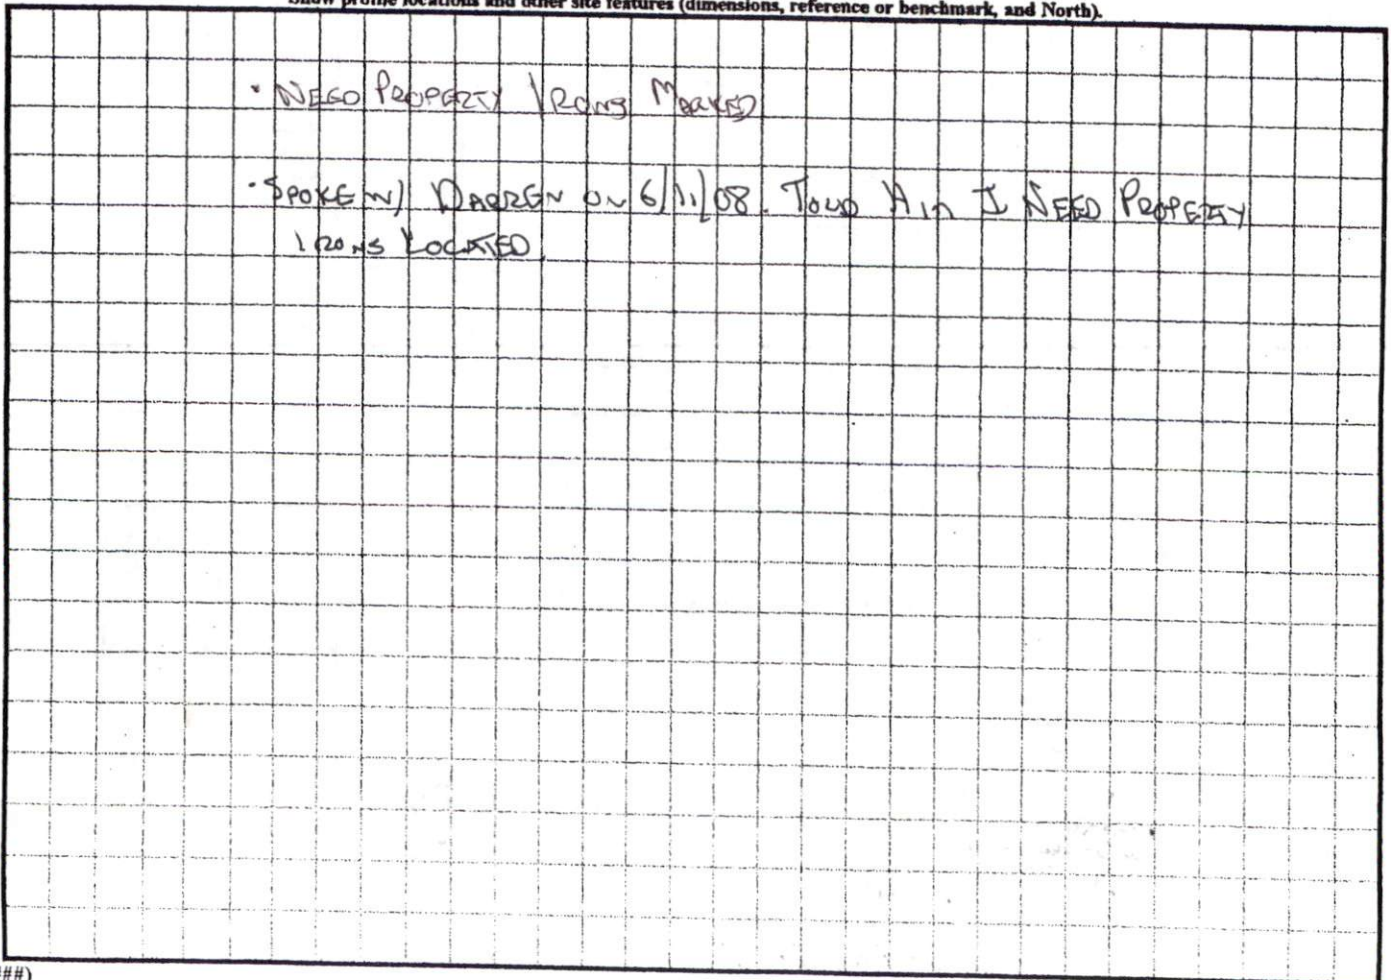 Show profile locations and other site features (dimensions, reference or benchmark, and North).
· NEED PROPERTY IRONS MARKED
· SPOKE W/ DARREN ON 6/11/08. TOLD HIM I NEED PROPERTY
IRONS LOCATED.
##)